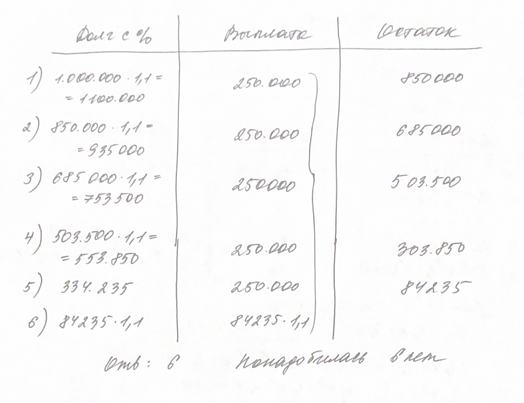 Долг с % Выплата Остаток
1) 1.000.000 · 1,1 = 250.000 850000
= 1100.000
2) 850.000 · 1,1 = 250.000 685000
= 935000
3) 685000 · 1,1 = 250000 503.500
= 753500
4) 503.500 · 1,1 = 250.000 303.850
= 553.850
5) 334.235 250.000 84235
6) 84235 · 1,1 84235 · 1,1
Отв: 6 Понадобилась 6 лет